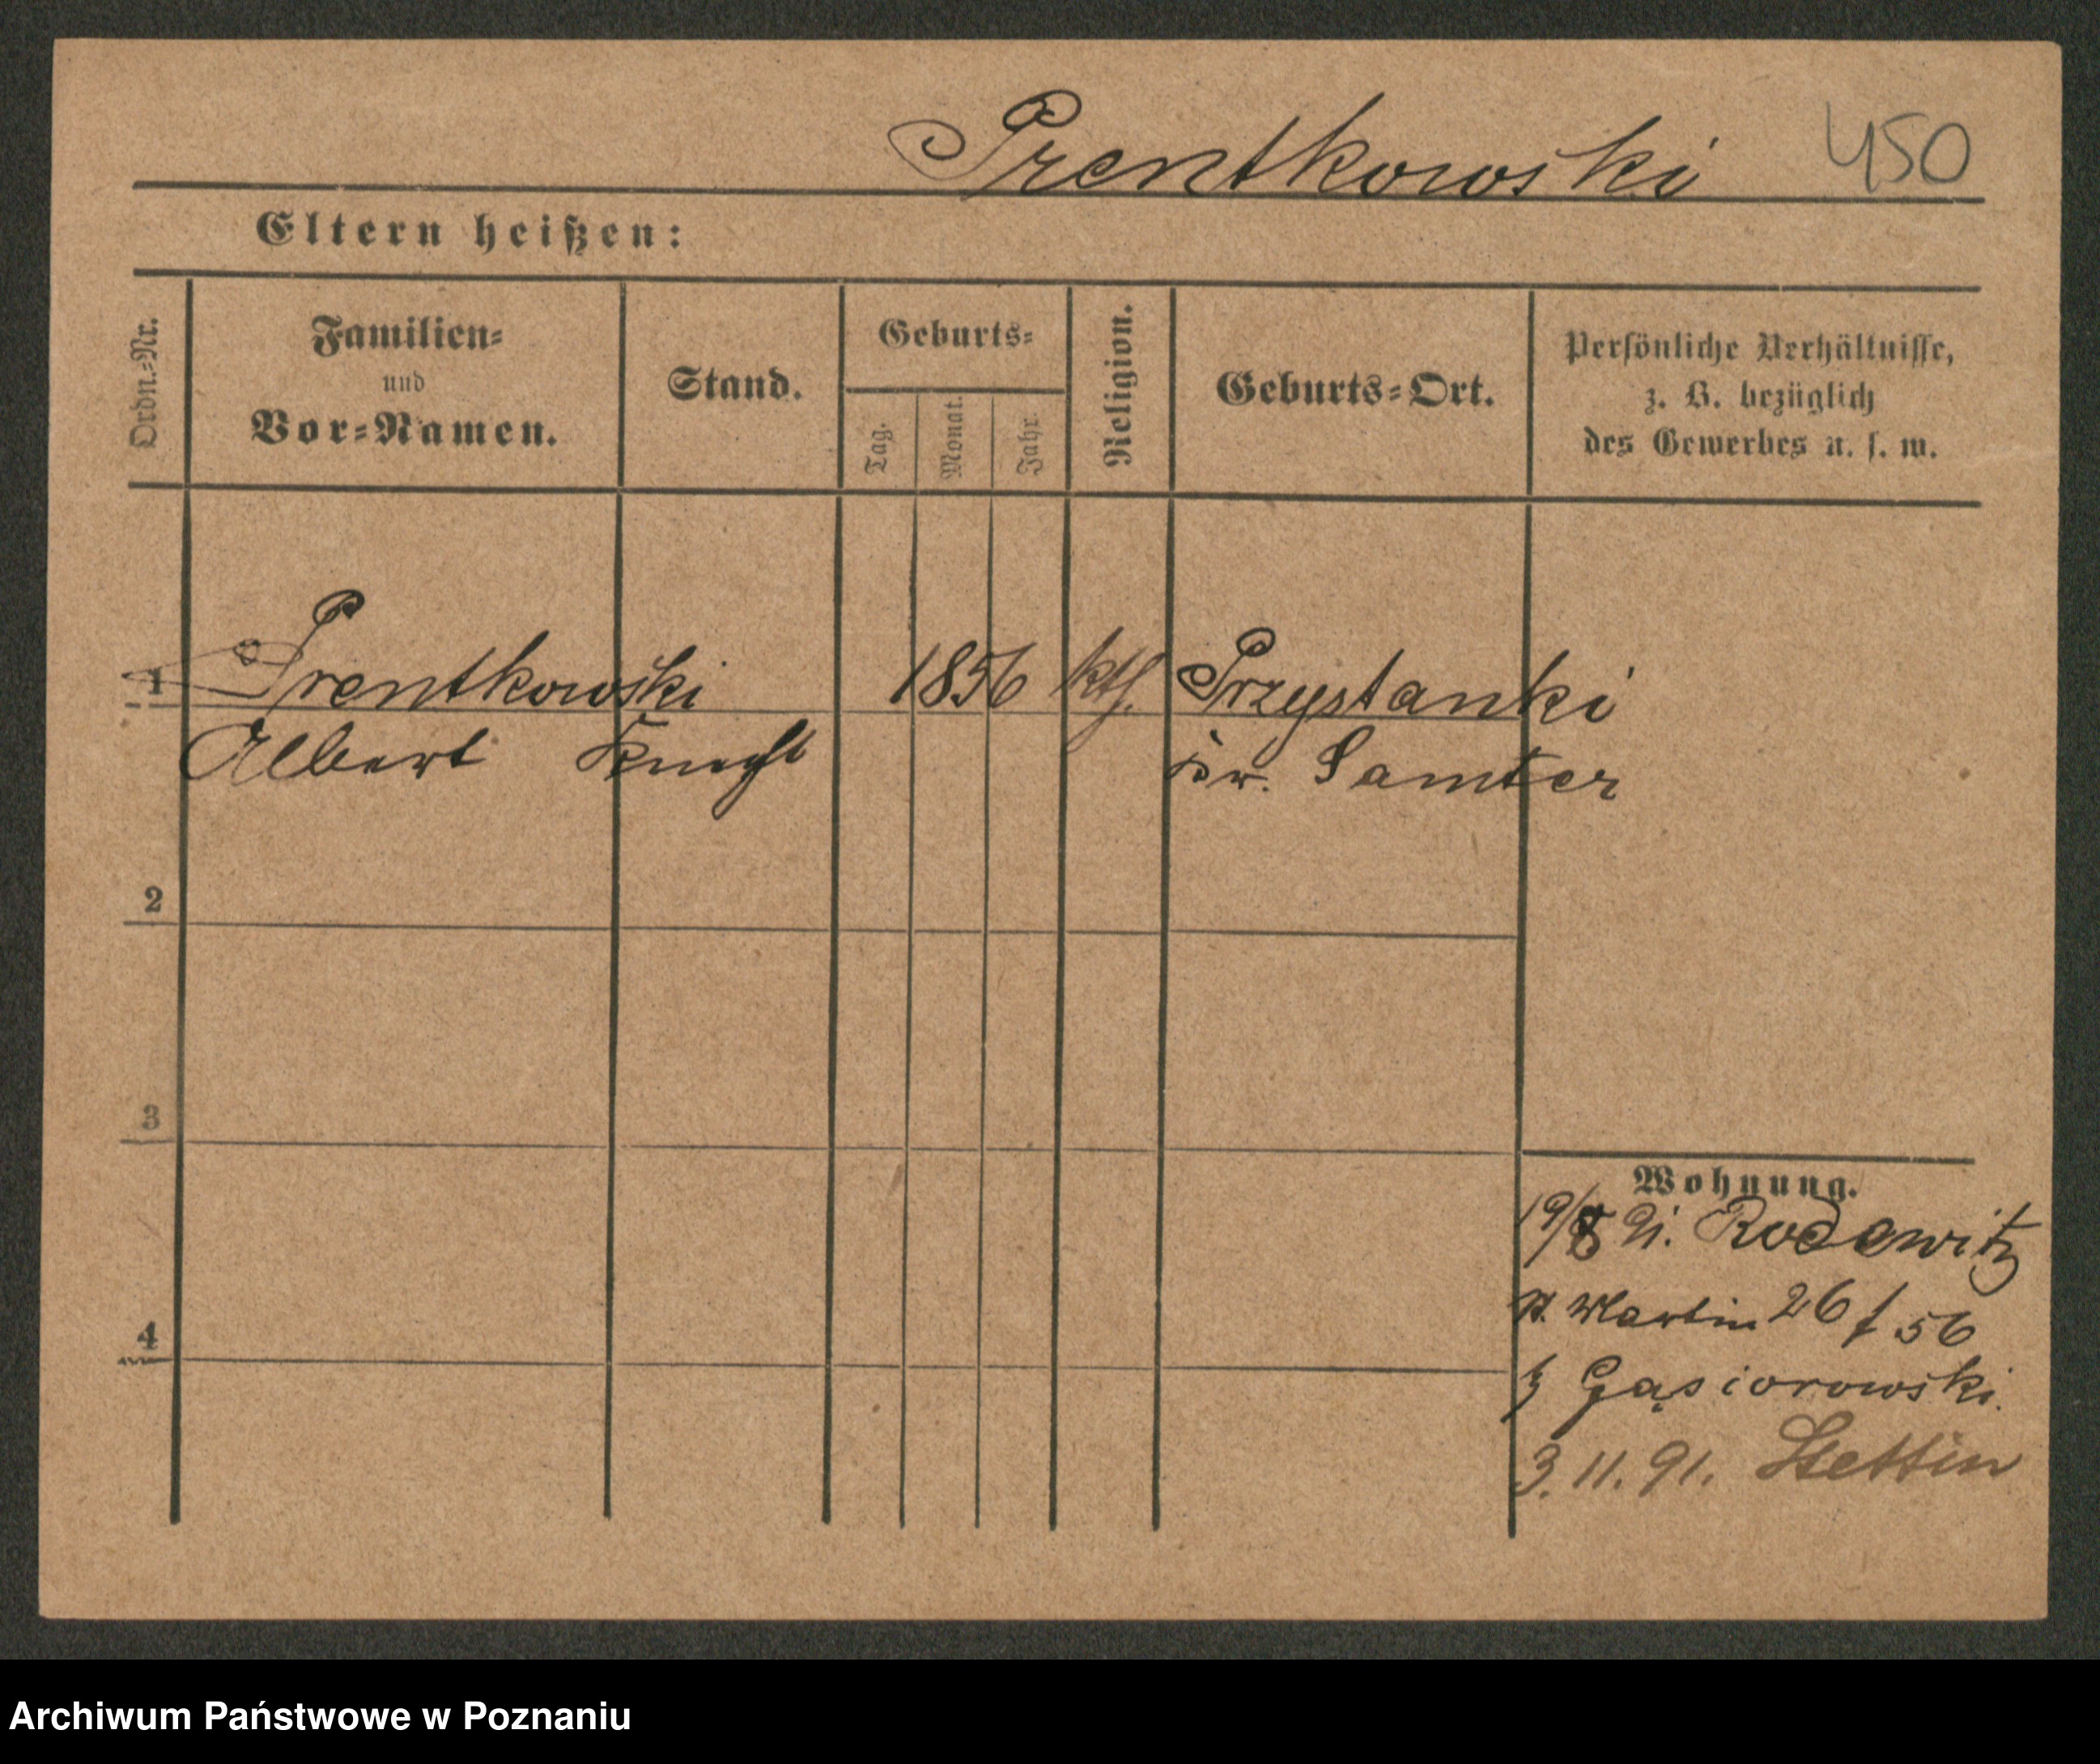 Prentkowski 450
Eltern heißen:
Ordn.-Nr.
Familien-
und
Vor-Namen.
Stand.
Geburts-
Tag.
Monat.
Jahr.
Religion.
Geburts-Ort.
Persönliche Verhältnisse,
z. B. bezüglich
des Gewerbes u. s. w.
1 Prentkowski 1856 kth. Przystanki
Albert Knecht Kr. Samter
2
3
4
Wohnung.
19/8 91. Rodewitz
St. Martin 26 f 56
b Gąsiorowski.
3.11.91. Stettin
Archiwum Państwowe w Poznaniu